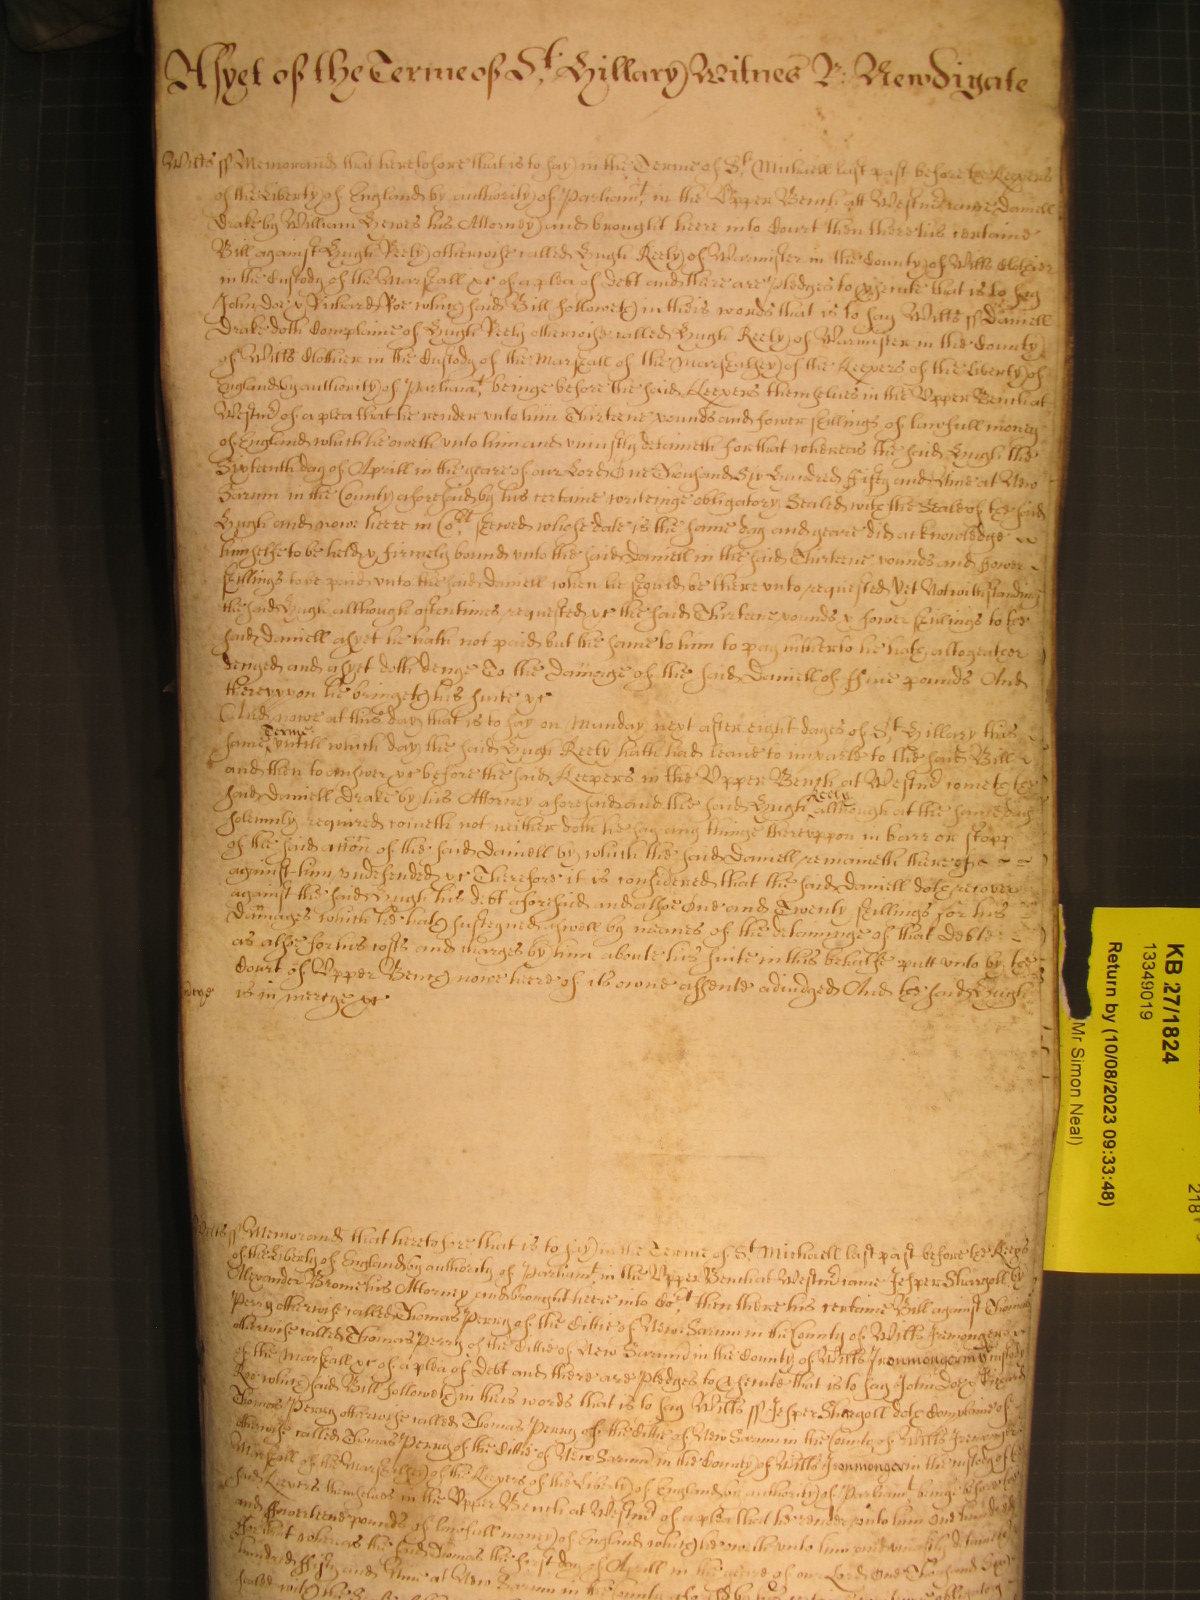 As yet of the Terme of St. Hillary Witnes R: Newdigate
Wilts ss Memorand that heretofore that is to say in the Terme of St Michaell last past before the Keepers
of the Liberty of England by authority of Parliamt in the Vpper Bench att Westmr came Daniell
Drake by William Hewes his Attorney and brought heere into Court then there his certaine
Bill against Hugh Reely otherwise called Hugh Reely of Warmister in the County of Wilts Clothier
in the Custody of the Marshall &c of a plea of debt and there are pledges to psecute that is to say
John Doe & Richard Roe which said Bill followeth in theis words that is to say Wilts ss Daniell
Drake doth Complaine of Hugh Reely otherwise called Hugh Reely of Warmister in the County
of Wilts Clothier in the Custody of the Marshall of the Marshallsey of the Keepers of the Liberty of
England by authority of Parliamt beinge before the said Keepers themselues in the Vpper Bench at
Westmr of a plea that he render vnto him Thirteene pounds and fower shillings of lawfull money
of England which he oweth vnto him and vniustly detaineth for that whereas the said Hugh the
Sixteenth day of Aprill in the yeare of our Lord One Thousand Six Hundred ffifty and Nine at New
Sarum in the County aforesaid by his certaine writeinge obligatory Sealed with the Seale of the said
Hugh and nowe heere in Cort shewed whose date is the same day and yeare did acknowledge
himselfe to be held & firmely bound vnto the said Daniell in the said Thirteene pounds and fower
shillings to be paid vnto the said Daniell when he should be there vnto requested Yet Notwithstandinge
the said Hugh although oftentimes requested &c the said Thirteene pounds & fower shillings to the
said Daniell as yet he hath not paid but the same to him to pay hitherto he hath altogeather
denyed and as yet doth denye To the Damage of the said Daniell of ffiue pounds And
therevpon he bringeth his suite &c
And nowe at this day that is to say on Munday next after eight dayes of St Hillary this
same Terme vntill which day the said Hugh Reely hath had leaue to imparle to the said Bill
and then to answer &c before the said Keepers in the Vpper Bench at Westmr cometh the
said Daniell Drake by his Attorney aforesaid and the said Hugh Reely although at the same day
solemnly required cometh not neither doth he say any thinge therevppon in barr or stopp
of the said accon of the said Daniell by which the said Daniell remaineth thereof
against him vndefended &c Therefore it is considered that the said Daniell doth recover
against the said Hugh his debt aforesaid and alsoe One and Twenty shillings for his
Damages which he hath susteyned aswell by meanes of the detaininge of that Debte
as alsoe for his costs and charges by him aboute his suite in this behalfe putt vnto by the
Court of Vpper Bench nowe heere of its owne assente adiudged And the said Hugh
is in mercye &c
mercye
Wilts ss Memorand that heretofore that is to say in the Terme of St Michaell last past before the Keeps
of the Liberty of England by authority of Parliamt in the Vpper Bench at Westmr came Jesper Shergoll by
Alexander Brome his Attorney and brought heere into Cort then there his certaine Bill against Thomas
Perry otherwise called Thomas Perry of the Cittie of New Sarum in the County of Wilts Iremonger
otherwise called Thomas Perry of the Cittie of New Sarum in the County of Wilts Ironmonger in Custody
of the Marshall &c of a plea of Debt and there are pledges to psecute that is to say John Doe & Richard
Roe which said Bill followeth in theis words that is to say Wilts ss Jesper Shergoll doth Complaine of
Thomas Perry otherwise called Thomas Perry of the Cittie of New Sarum in the County of Wilts Iremonger
otherwise called Thomas Perry of the Cittie of New Sarum in the County of Wilts Ironmonger in the custody of the
Marshall of the Marshallsey of the Keepers of the Liberty of England by authority of Parliamt beinge before the
said Keepers themselues in the Vpper Bench at Westmr of a plea that he render vnto him One hundred
and ffowerteene pounds of lawfull money of England which he oweth vnto him and vniustly detaineth
for that whereas the said Thomas the first day of Aprill in the yeare of our Lord One Thousand Six
hundred ffifty and Nine at New Sarum in the County aforesd by his certaine writeinge obligatory
sealed with the
KB 27/1824
13349019
Return by (10/08/2023 09:33:48)
Mr Simon Neal)